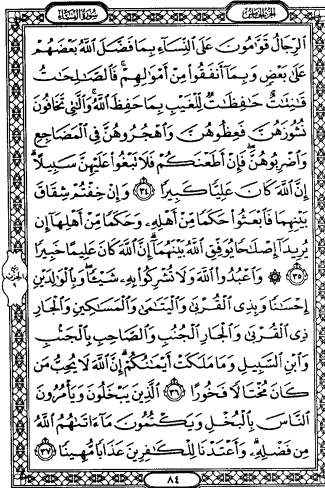 سورة النساء
الجزء الخامس
ٱلرِّجَالُ قَوَّٰمُونَ عَلَى ٱلنِّسَآءِ بِمَا فَضَّلَ ٱللَّهُ بَعْضَهُمْ
عَلَىٰ بَعْضٍ وَبِمَآ أَنفَقُوا۟ مِنْ أَمْوَٰلِهِمْ ۚ فَٱلصَّٰلِحَٰتُ
قَٰنِتَٰتٌ حَٰفِظَٰتٌ لِّلْغَيْبِ بِمَا حَفِظَ ٱللَّهُ ۚ وَٱلَّٰتِى تَخَافُونَ
نُشُوزَهُنَّ فَعِظُوهُنَّ وَٱهْجُرُوهُنَّ فِى ٱلْمَضَاجِعِ
وَٱضْرِبُوهُنَّ ۖ فَإِنْ أَطَعْنَكُمْ فَلَا تَبْغُوا۟ عَلَيْهِنَّ سَبِيلًا ۗ
إِنَّ ٱللَّهَ كَانَ عَلِيًّا كَبِيرًا ٣٤ وَإِنْ خِفْتُمْ شِقَاقَ
بَيْنِهِمَا فَٱبْعَثُوا۟ حَكَمًا مِّنْ أَهْلِهِۦ وَحَكَمًا مِّنْ أَهْلِهَآ إِن
يُرِيدَآ إِصْلَٰحًا يُوَفِّقِ ٱللَّهُ بَيْنَهُمَآ ۗ إِنَّ ٱللَّهَ كَانَ عَلِيمًا خَبِيرًا
٣٥ ۞ وَٱعْبُدُوا۟ ٱللَّهَ وَلَا تُشْرِكُوا۟ بِهِۦ شَيْـًٔا ۖ وَبِٱلْوَٰلِدَيْنِ
إِحْسَٰنًا وَبِذِى ٱلْقُرْبَىٰ وَٱلْيَتَٰمَىٰ وَٱلْمَسَٰكِينِ وَٱلْجَارِ
ذِى ٱلْقُرْبَىٰ وَٱلْجَارِ ٱلْجُنُبِ وَٱلصَّاحِبِ بِٱلْجَنۢبِ
وَٱبْنِ ٱلسَّبِيلِ وَمَا مَلَكَتْ أَيْمَٰنُكُمْ ۗ إِنَّ ٱللَّهَ لَا يُحِبُّ مَن
كَانَ مُخْتَالًا فَخُورًا ٣٦ ٱلَّذِينَ يَبْخَلُونَ وَيَأْمُرُونَ
ٱلنَّاسَ بِٱلْبُخْلِ وَيَكْتُمُونَ مَآ ءَاتَىٰهُمُ ٱللَّهُ
مِن فَضْلِهِۦ ۗ وَأَعْتَدْنَا لِلْكَٰفِرِينَ عَذَابًا مُّهِينًا ٣٧
٨٤